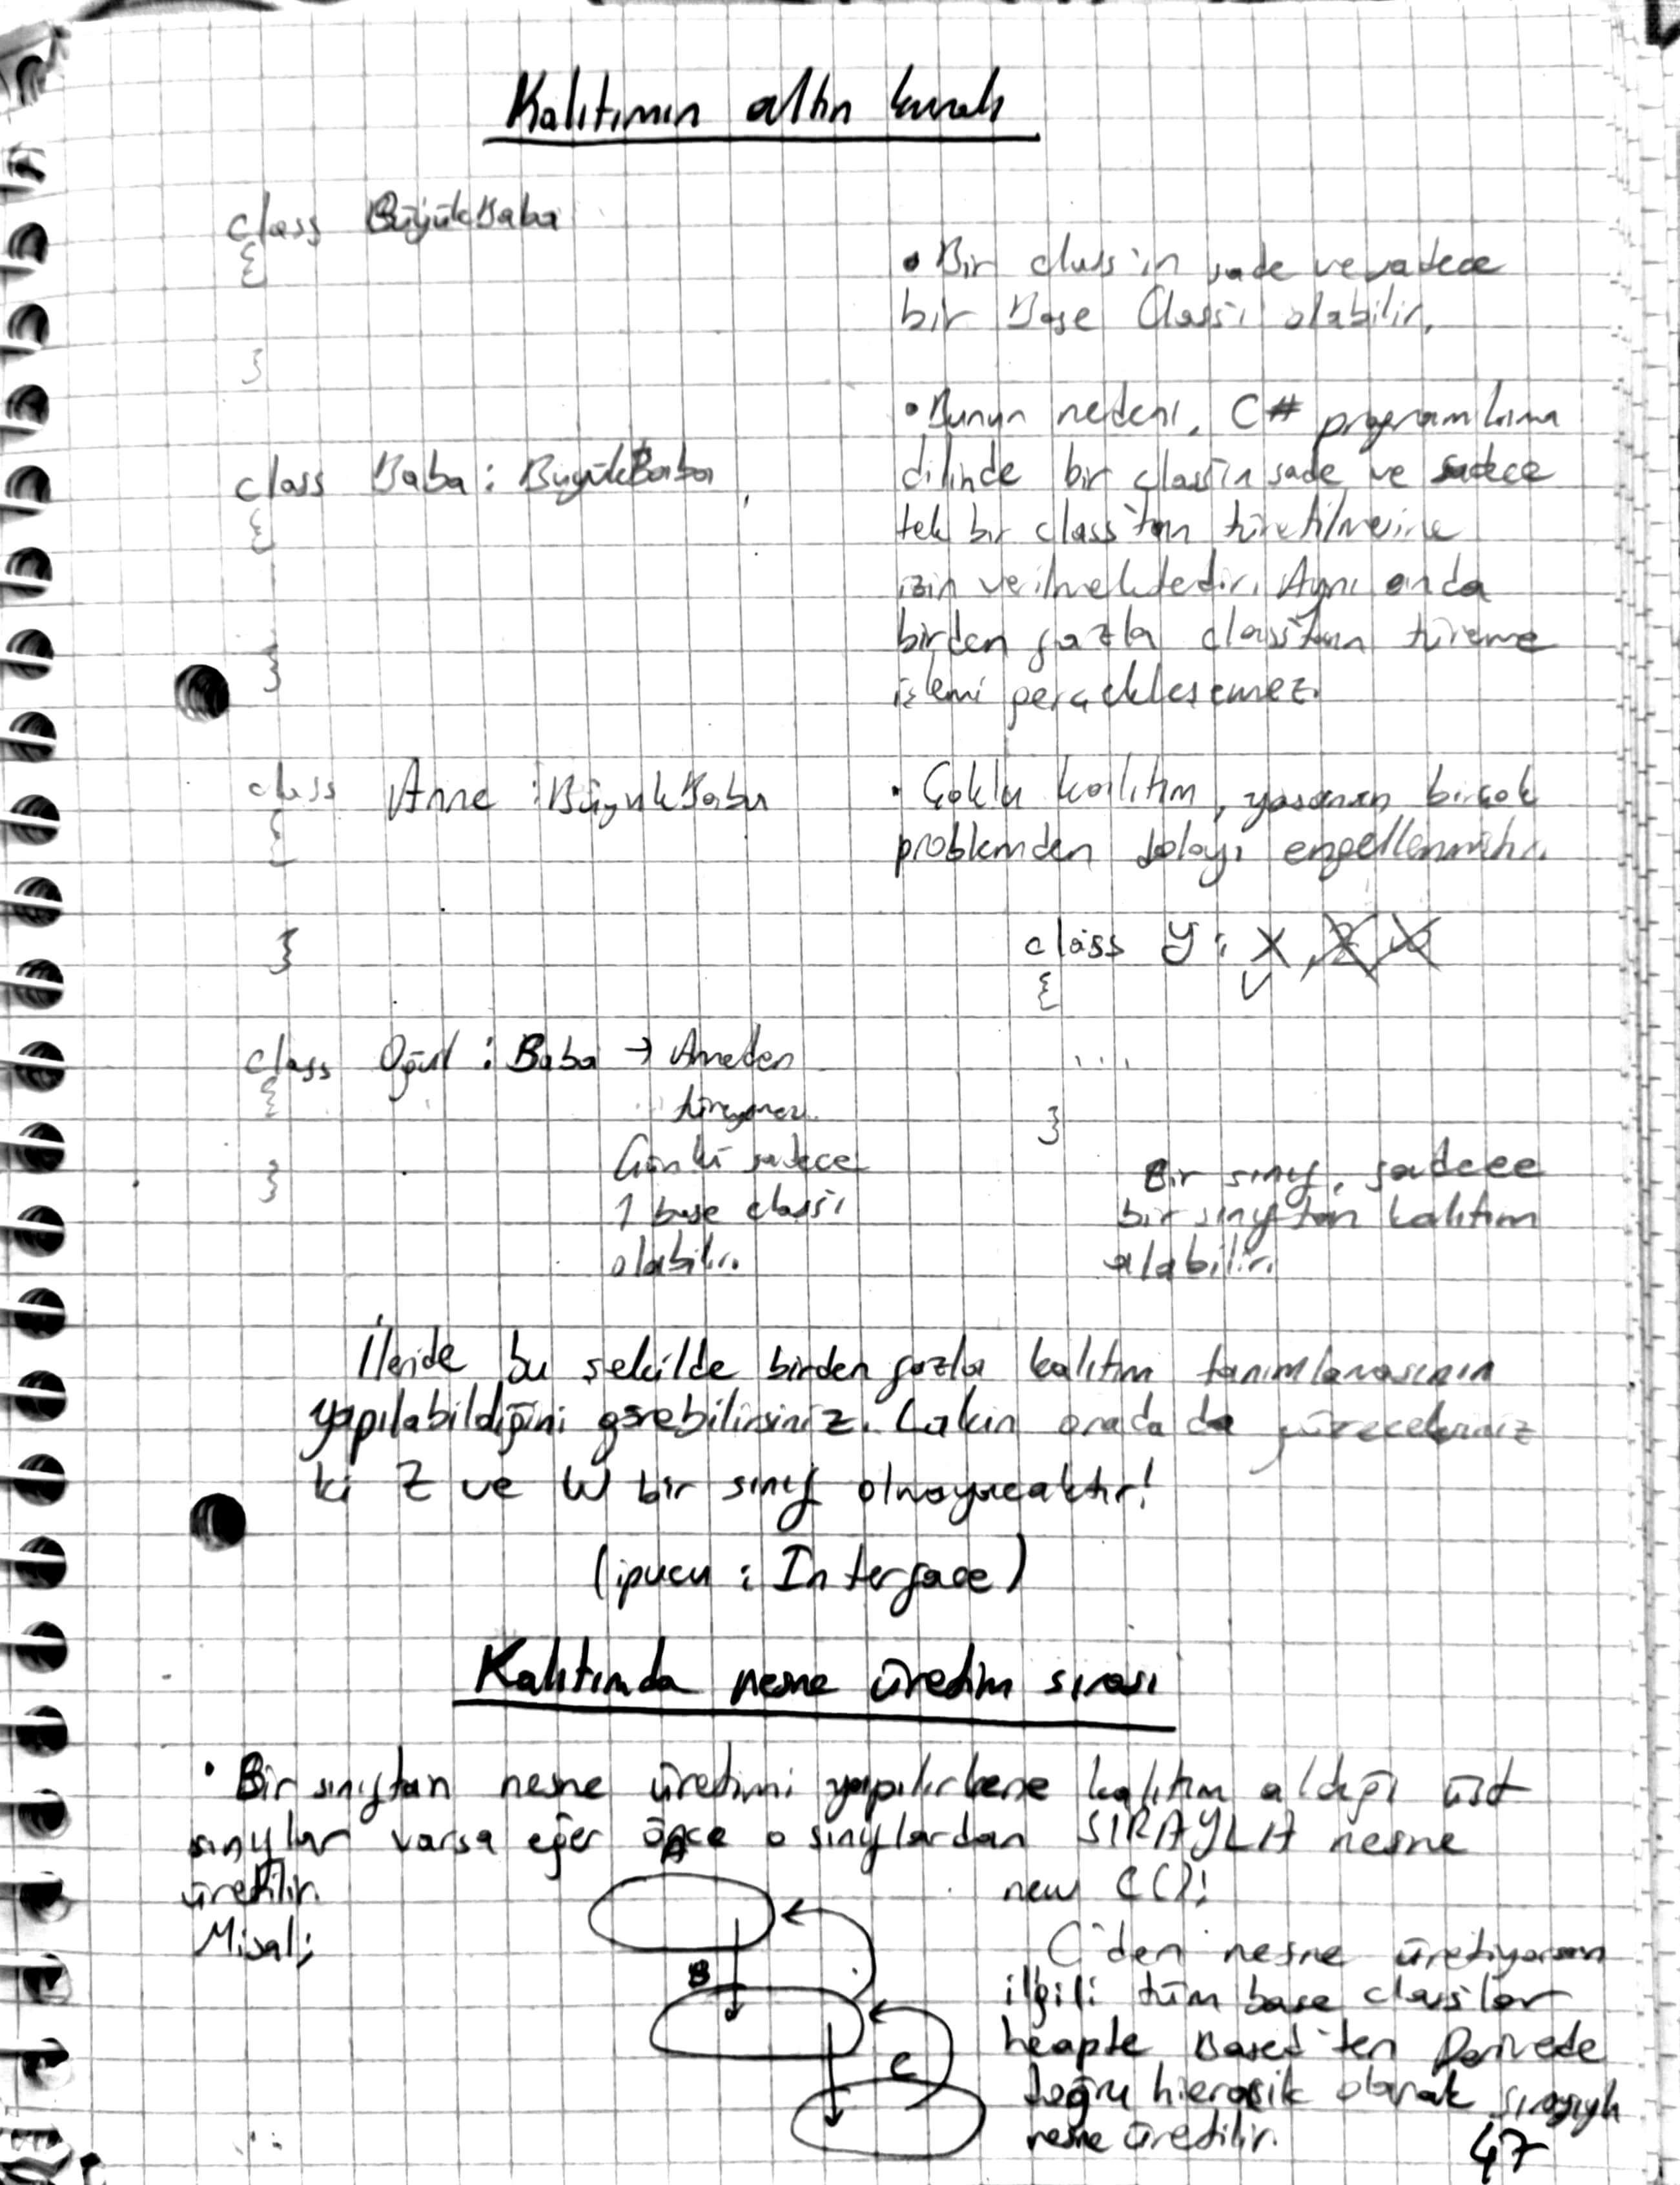 Kalıtımın altın kuralı
class BüyükBaba
{
}
class Baba : BüyükBaba
{
}
class Anne : BüyükBaba
{
}
class Oğul : Baba → Anneden
türeyemez.
Çünkü sadece
1 base class'ı
olabilir.
{
}
• Bir class'ın sade ve sadece
bir Base Class'ı olabilir.
• Bunun nedeni, C# programlama
dilinde bir class'ın sade ve sadece
tek bir class'tan türetilmesine
izin verilmektedir. Aynı anda
birden fazla class'tan türeme
işlemi gerçekleşemez.
• Çoklu kalıtım, yaşanan birçok
problemden dolayı engellenmiştir.
class Y : X, Z, W
{
...
}
Bir sınıf, sadece
bir sınıftan kalıtım
alabilir.
İleride bu şekilde birden fazla kalıtım tanımlamasının
yapılabildiğini görebilirsiniz. Lakin orada da göreceksiniz
ki Z ve W bir sınıf olmayacaktır!
(ipucu : Interface)
Kalıtımda nesne üretim sırası
• Bir sınıftan nesne üretimi yapılırkene kalıtım aldığı üst
sınıflar varsa eğer önce o sınıflardan SIRAYLA nesne
üretilir.
Misal;
A
B
C
new C();
C'den nesne üretiyorsan
ilgili tüm base classlar
heapte Based'ten Derivede
doğru hierarşik olarak sırasıyla
nesne üretilir.
47